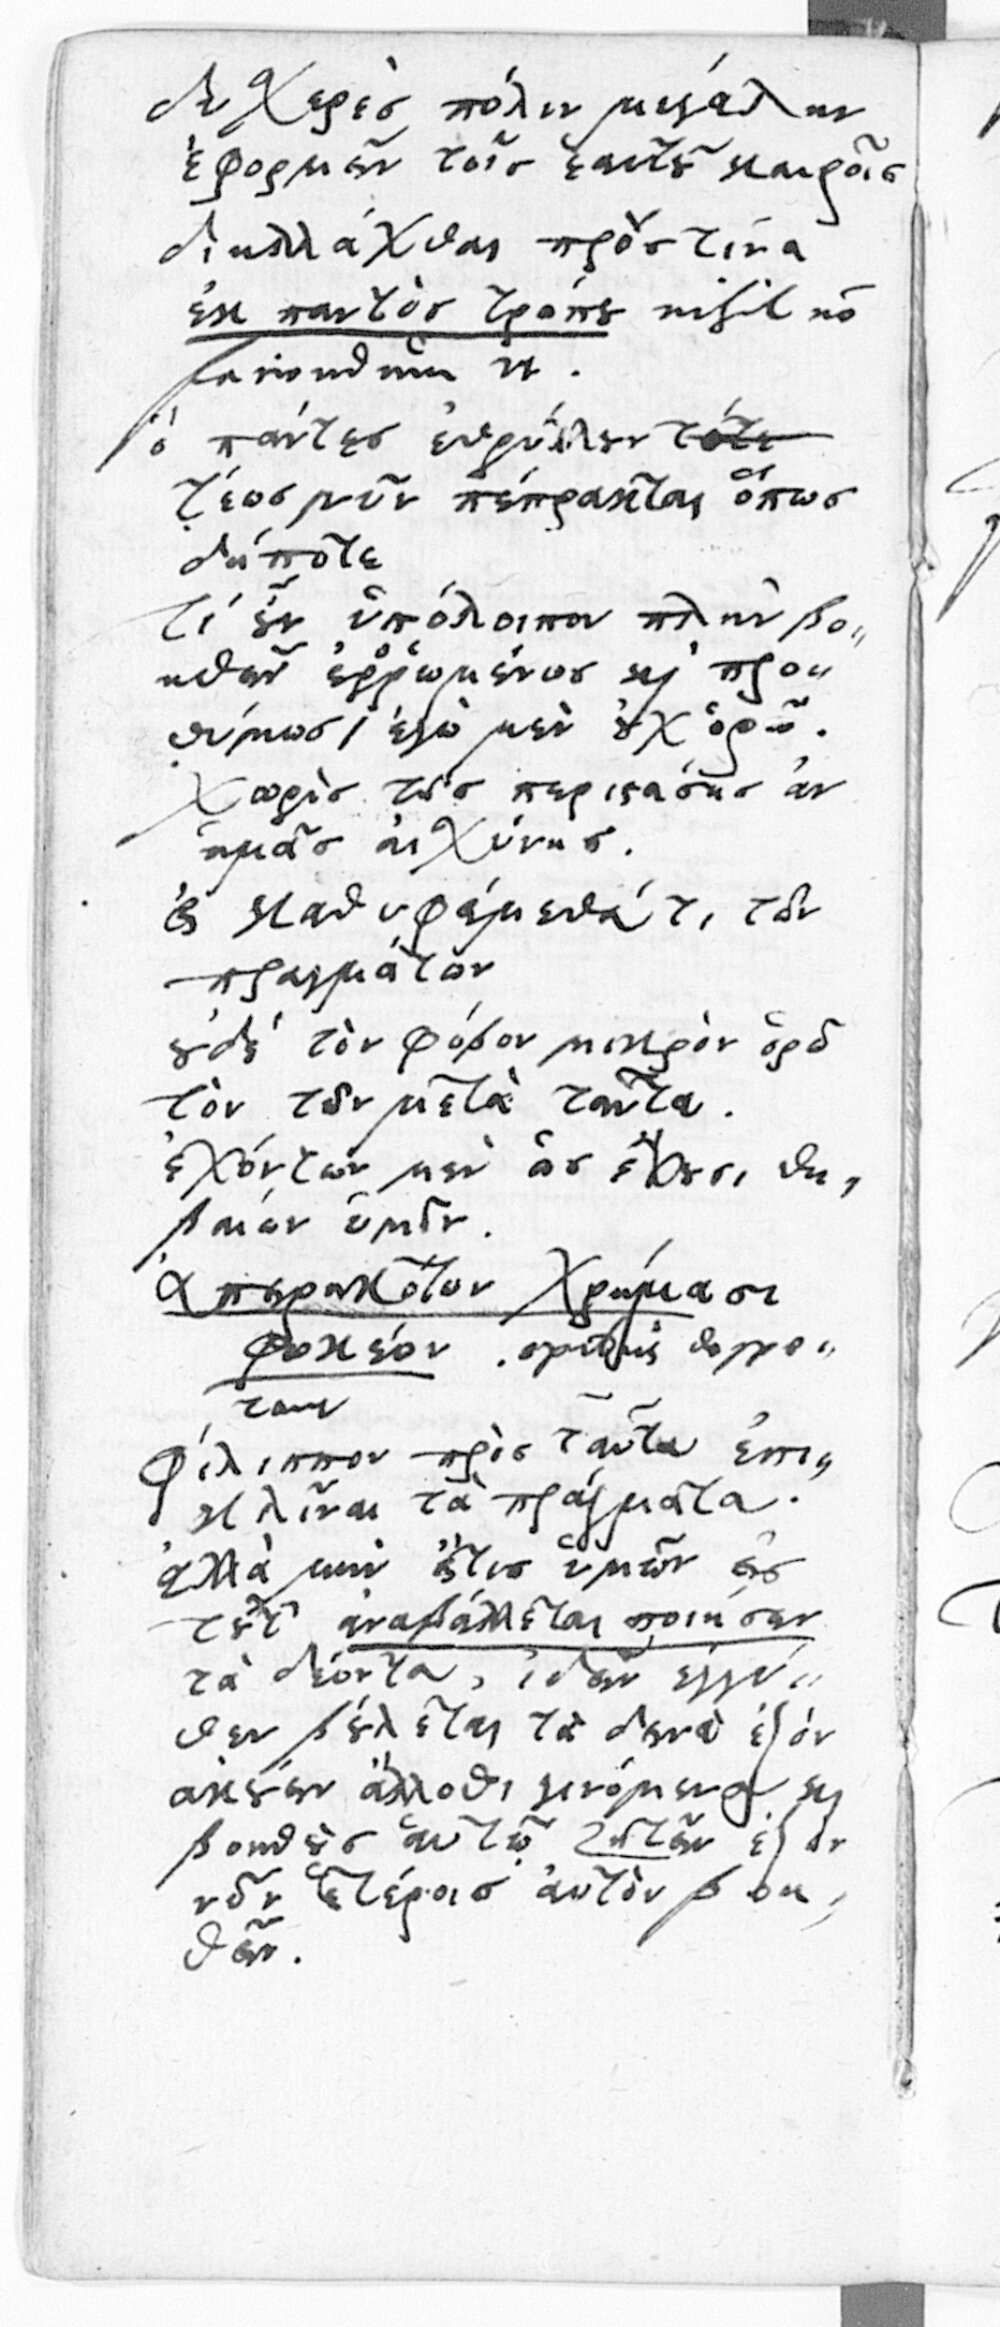 δυχερὲς πόλιν μεγάλην
ἐφορμεῖν τοῖς ἑαυτοῦ καιροῖς
διηλλάχθαι πρὸς τινα
ἐκ παντὸς τρόπου nihil nō
faciendum
ὃ πάντες ἐθρύλλουν τότε
τέως νυν πέπρακται ὅπως
δήποτε
τί οὖν ὑπόλοιπον πλὴν βο„
ηθεῖν ἐῤῥωμένως καὶ προ„
θύμως / ἐγὼ μὲν οὐχ ὁρῶ.
χωρὶς τῆς περιστάσης ἂν
ἡμᾶς αἰσχύνης.
εἰ καθυφείμεθά τι τῶν
πραγμάτων
οὐδὲ τὸν φόβον μικρὸν ὁρῶ
τὸν τῶν μετὰ ταῦτα.
ἐχόντων μὲν ὡς ἔχουσι θη„
βαίων ὑμῖν.
ἀπειρηκότων χρήμασι
φωκέων.
Φίλιππον πρὸς ταῦτα ἐπι„
κλῖναι τὰ πράγματα.
ἀλλὰ μὴν εἴ τις ὑμῶν εἰς
τοῦτ᾽ ἀναβάλλεται ποιήσειν
τὰ δέοντα, ἰδεῖν ἐγγύ„
θεν βούλεται τὰ δεινὰ ἐξὸν
ἀκούειν ἄλλοθι γινόμενα καὶ
βοηθοὺς ἑαυτῷ ζητεῖν ἐξὸν
νῦν ἑτέροις αὐτὸν βοη„
θεῖν.